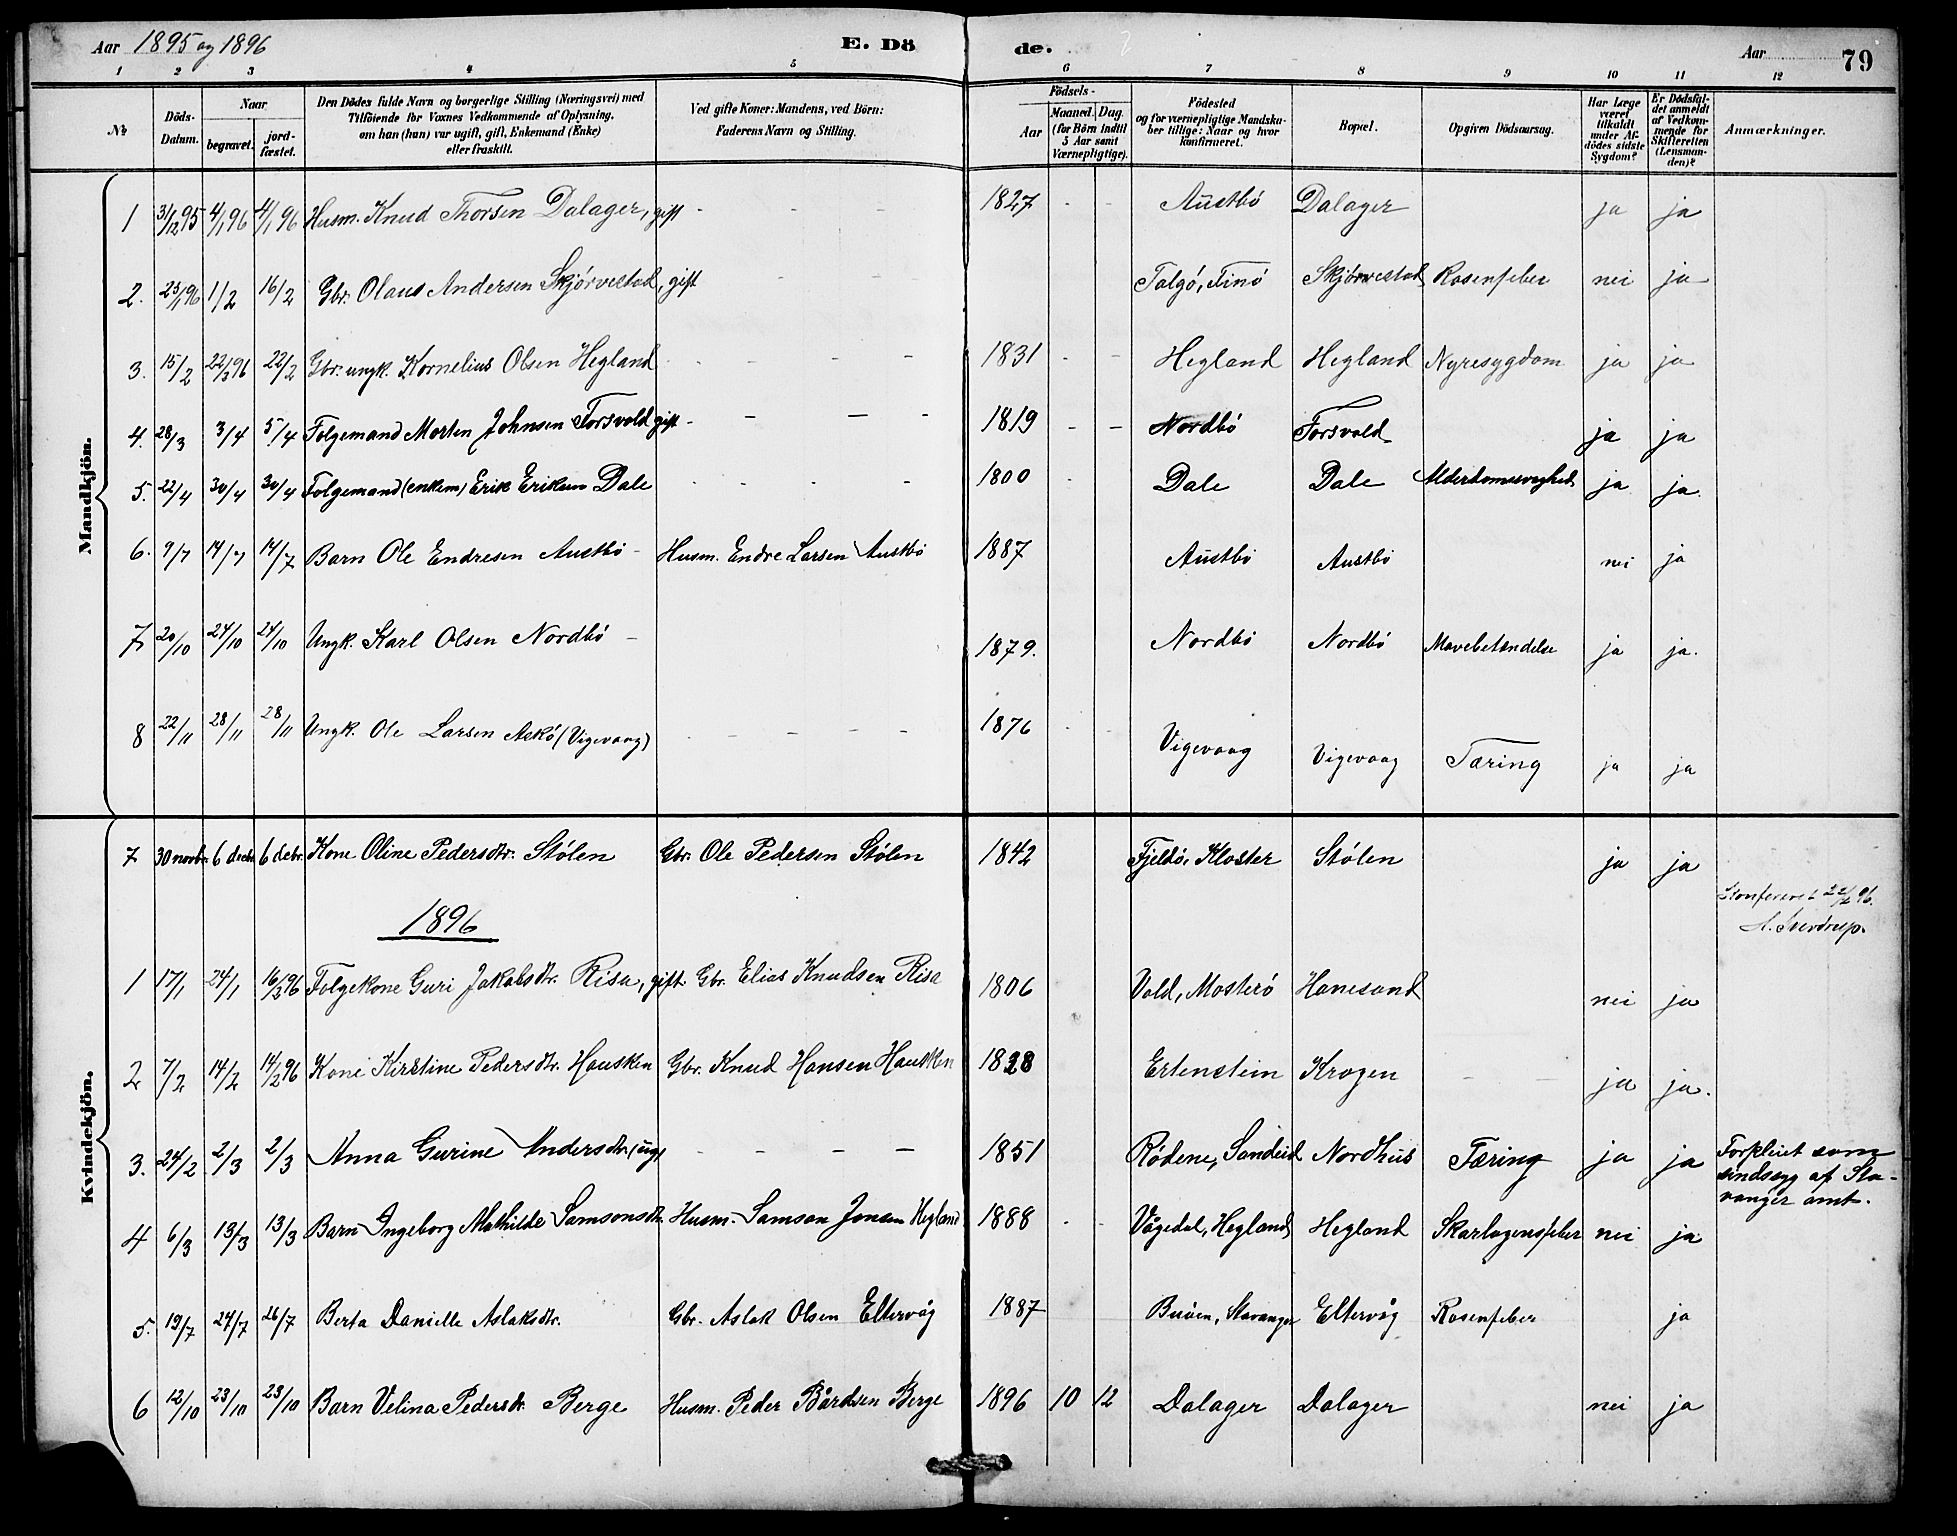 Aar 1895 og 1896 E. Dö de. Aar 79
1 2 3 4 5 6 7 8 9 10 11 12
No
Döds-Datum.
Naar
begravet.
jordfæstet.
Den Dödes fulde Navn og borgerlige Stilling (Næringsvei) med
Tilföiende for Voxnes Vedkommende af Oplysning,
om han (hun) var ugift, gift, Enkemand (Enke)
eller fraskilt.
Ved gifte Koner: Mandens, ved Börn:
Faderens Navn og Stilling.
Födsels-
Aar
Maaned. Dag.
(for Börn indtil
5 Aar samt
Værnepligtige).
Födested
og for værnepligtige Mandska-
ber tillige: Naar og hvor
konfirmeret.
Bopæl.
Opgiven Dödsaarsag.
Har Læge
været
tilkaldt
under Af-
dödes sidste
Sygdom?
Er Dödsfal-
det anmeldt
af Vedkom-
mende for
Skifteretten
(Lensman-
den)?
Anmærkninger.
Mandkjön.
1 31/12 95 4/1 96 4/1 96 Husm. Knud Thorsen Dalager, gift - - - 1827 - - Austbö Dalager ja ja
2. 25/1 96 1/2 16/2 Gbr. Olaus Andersen Skjörvestad, gift - - - Talgö, Finö Skjörvestad Rosenfeber nei ja
3. 15/2 22/2 96 22/2 Gbr. ungk. Kornelius Olsen Hegland - - - - 1831 - - Hegland Hegland Nyresygdom ja ja
4. 28/3 3/4 5/4 Folgemand Morten Johnsen Forsvold gift - - - - 1819 - - Nordbö Forsvold ja ja
5. 22/4 30/4 30/4 Folgemand (enkem) Erik Eriksen Dale - - - - 1800 - Dale Dale Alderdomssvaghed ja ja
6. 9/7 14/7 14/7 Barn Ole Endresen Austbö - Husm. Endre Larsen Austbö 1887 Austbö Austbö nei ja
7 20/10 24/10 24/10 Ungk. Karl Olsen Nordbö - 1879. Nordbö Nordbö Mavebetændelse ja ja.
8 22/11 28/11 28/11 Ungk. Ole Larsen Askö (Vigevaag) - - - - 1876 - - Vigevaag Vigevaag Tæring ja ja
Kvindekjön.
7 30 novbr. 6 decbr. 6 debr. Kone Oline Pedersdtr. Stölen Gbr. Ole Pedersen Stölen 1842 Fjeldö, Kloster Stölen ja ja
Konfereret 22/2 96.
Sverdrup.
1896
1 17/1 24/1 16/2 96 Folgekone Guri Jakobsdtr. Risa, gift. Gbr. Elias Knudsen Risa 1806 Vold, Mosterö Hanesand nei ja
2 7/2 14/2 14/2 96 Kone Kirstine Pedersdtr. Hausken Gbr. Knud Hansen Hausken 1828 Ertenstein Krogen - - ja ja.
3. 24/2 2/3 2/3 Anna Gurine Andersdtr. (ug) - - - - 1851 Rødene, Sandeid Nordhus Tæring ja ja Forpleiet som
sindssyg af Sta-
vanger amt.
4 6/3 13/3 13/3 Barn Ingeborg Mathilde Samsonsdtr. Husm. Samson Jonsen Hegland 1888 - - Vågedal, Hegland Hegland Skarlagensfeber nei ja
5. 19/7 24/7 26/7 Berta Danielle Aslaksdtr. Gbr. Aslak Olsen Eltervåg 1887 Buöen, Stavanger Eltervåg Rosenfeber ja
6 12/10 23/10 23/10 Barn Velina Pedersdtr. Berge Husm. Peder Bårdsen Berge 1896 10 12 Dalager Dalager nei ja